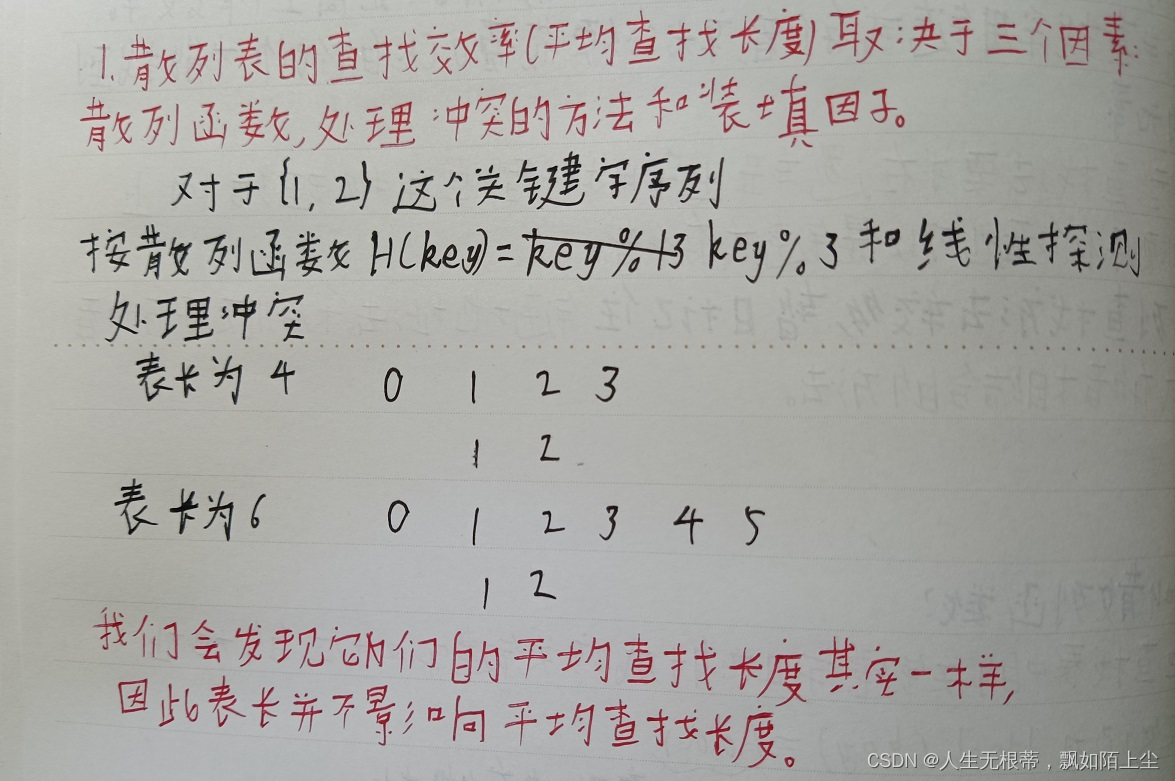 1.散列表的查找效率(平均查找长度)取决于三个因素:
散列函数,处理冲突的方法和装填因子。
对于{1,2}这个关键字序列
按散列函数H(key)=key%13 key%3和线性探测
处理冲突
表长为4 0 1 2 3
1 2
表长为6 0 1 2 3 4 5
1 2
我们会发现它们的平均查找长度其实一样,
因此表长并不影响平均查找长度。
CSDN @人生无根蒂,飘如陌上尘